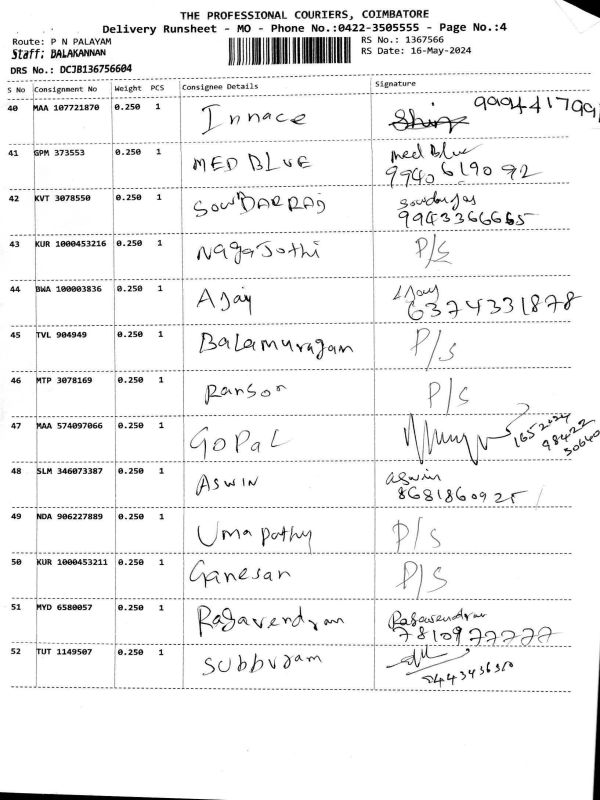 THE PROFESSIONAL COURIERS, COIMBATORE
Delivery Runsheet - MO - Phone No.:0422-3505555 - Page No.:4
Route: P N PALAYAM RS No.: 1367566
Staff: BALAKANNAN RS Date: 16-May-2024
DRS No.: DCJB136756604
S No Consignment No Weight PCS Consignee Details Signature
40 MAA 107721870 0.250 1 Innace 999441799
41 GPM 373553 0.250 1 MED BLUE Med Blue
9940619092
42 KVT 3078550 0.250 1 SOWNDARRAJ
9943366665
43 KUR 1000453216 0.250 1 Nagajothi P/S
44 BWA 100003836 0.250 1 Ajay Ajay
6374331878
45 TVL 904949 0.250 1 Balamurugan P/S
46 MTP 3078169 0.250 1 Ransor P/S
47 MAA 574097066 0.250 1 GOPAL 1652024
98422
30640
48 SLM 346073387 0.250 1 ASWIN aswin
8681860925
49 NDA 906227889 0.250 1 Umapathy P/S
50 KUR 1000453211 0.250 1 Ganesan P/S
51 MYD 6580057 0.250 1 Ragavendran Ragavendran
7810977777
52 TUT 1149507 0.250 1 Subburam
9443436310